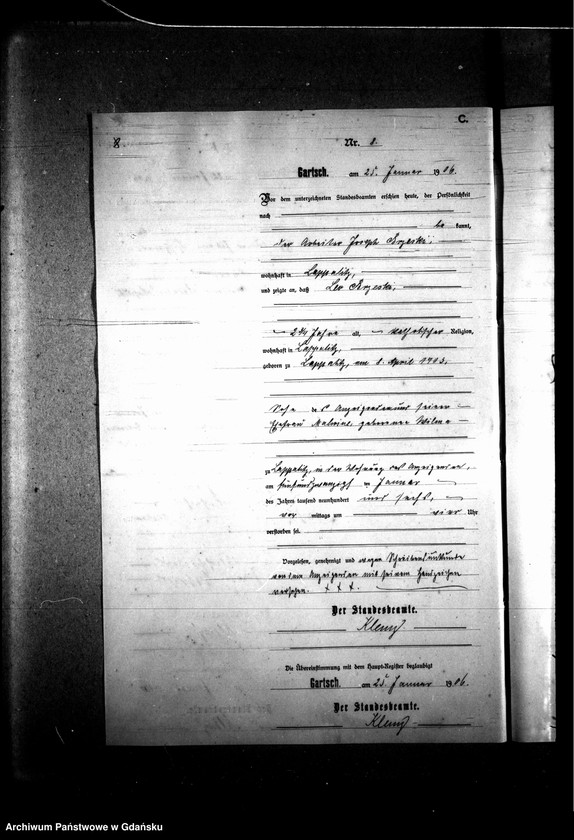 C.
8
Nr. 8.
Gartsch, am 25. Januar 1906.
Vor dem unterzeichneten Standesbeamten erschien heute, der Persönlichkeit
nach
be kannt,
der Arbeiter Joseph
wohnhaft in Lappalitz,
und zeigte an, daß Leo
2 3/4 Jahre alt, katholischer Religion,
wohnhaft in Lappalitz,
geboren zu Lappalitz, am 8. April 1903,
Sohn des Anzeigenden und seiner
Ehefrau Malwine, geborene
zu Lappalitz, in der Wohnung des Anzeigenden,
am fünfundzwanzigsten Januar
des Jahres tausend neunhundert und sechs,
vor mittags um vier Uhr
verstorben sei.
Vorgelesen, genehmigt und wegen Schreibensunkunde
von dem Anzeigenden mit seinem Handzeichen
versehen. + + +.
Der Standesbeamte.
Klemp
Die Übereinstimmung mit dem Haupt-Register beglaubigt
Gartsch, am 25. Januar 1906.
Der Standesbeamte.
Klemp
Archiwum Państwowe w Gdańsku